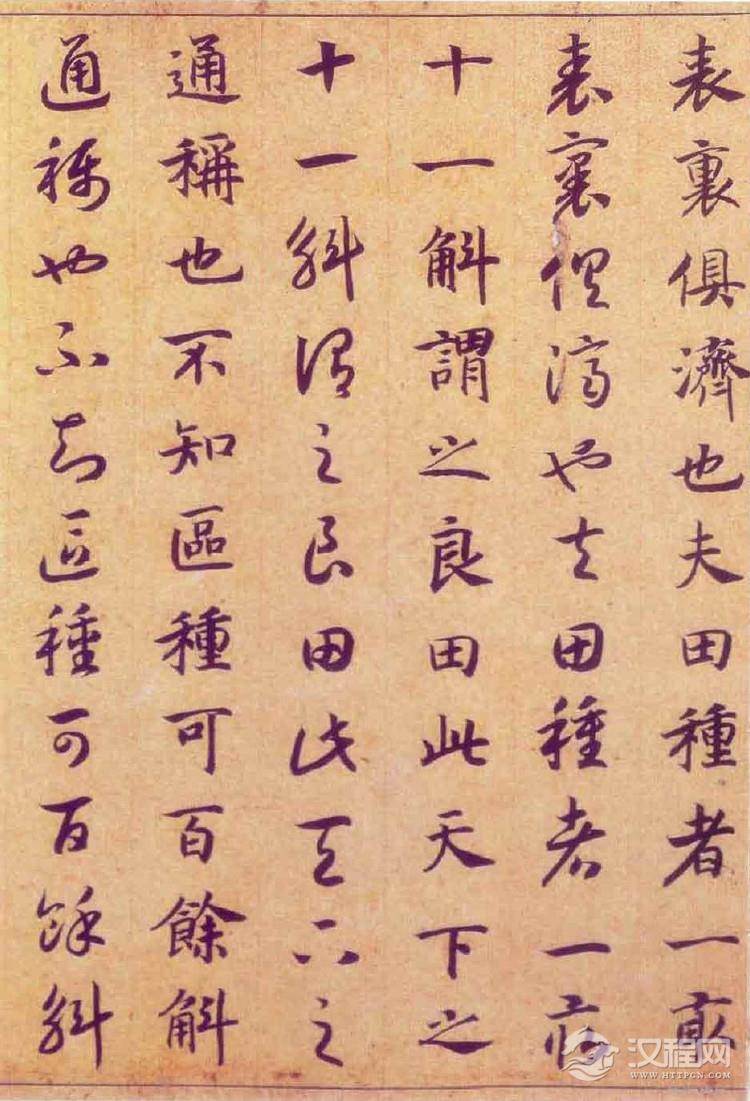 表裏俱濟也夫田種者一畝
表裏俱濟也夫田種者一畝
十一斛謂之良田此天下之
十一斛謂之良田此天下之
通稱也不知區種可百餘斛
通稱也不知區種可百餘斛
汉程网
WWW.HTTPCN.COM